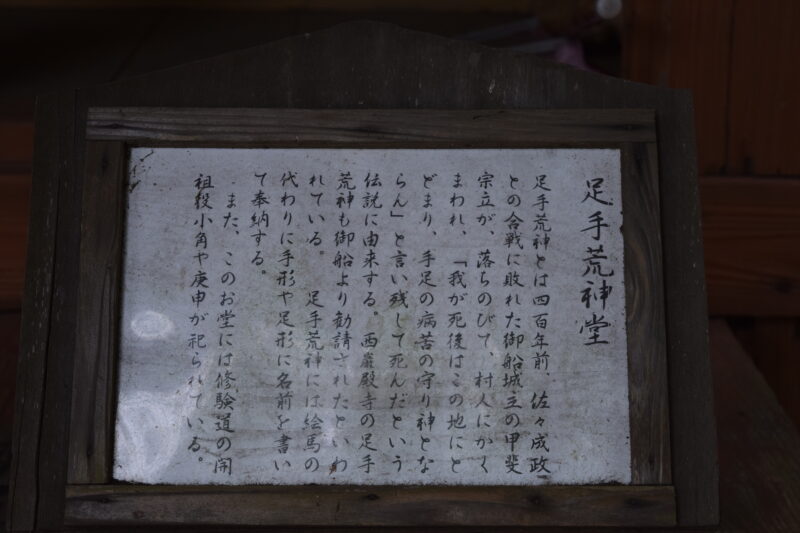 足手荒神堂
足手荒神とは四百年前、佐々成政
との合戦に敗れた御船城主の甲斐
宗立が、落ちのびて、村人にかく
まわれ、「我が死後はこの地にと
どまり、手足の病苦の守り神とな
らん」と言い残して死んだという
伝説に由来する。西巌殿寺の足手
荒神も御船より勧請されたといわ
れている。 足手荒神には絵馬の
代わりに手形や足形に名前を書い
て奉納する。
また、このお堂には修験道の開
祖役小角や庚申が祀られている。